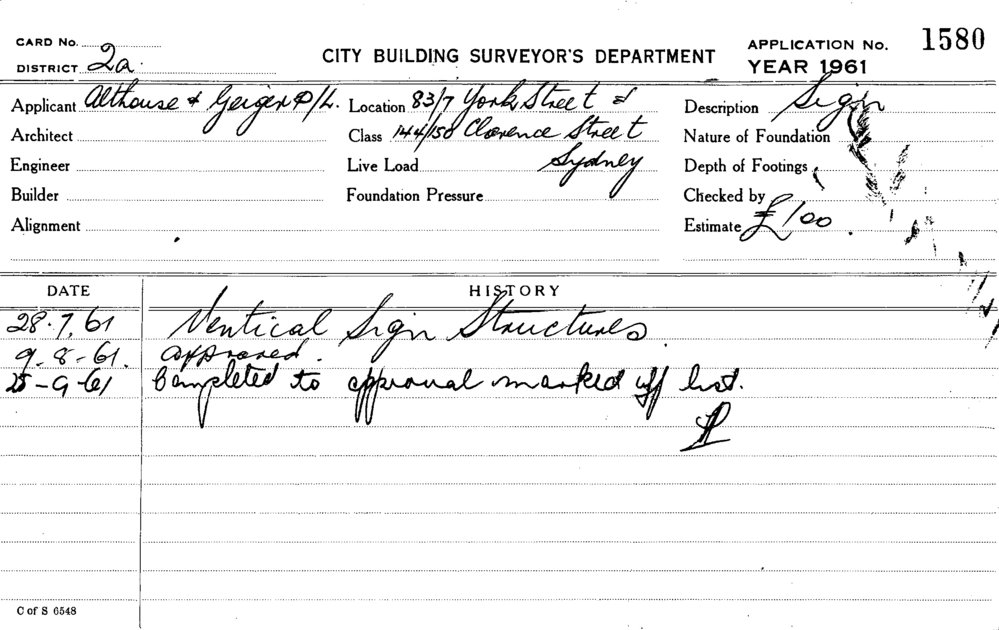 CARD No.
DISTRICT 2a.
CITY BUILDING SURVEYOR'S DEPARTMENT
APPLICATION No. 1580
YEAR 1961
Applicant Althouse & Geiger P/L. Location 83/7 York Street & Description Sign
Architect Class 144/150 Clarence Street Nature of Foundation
Engineer Live Load Sydney Depth of Footings
Builder Foundation Pressure Checked by
Alignment Estimate £100.
DATE HISTORY
28.7.61 Vertical Sign Structures.
9-8-61. approved.
25-9-61 Completed to approval marked off list.
C of S 6548